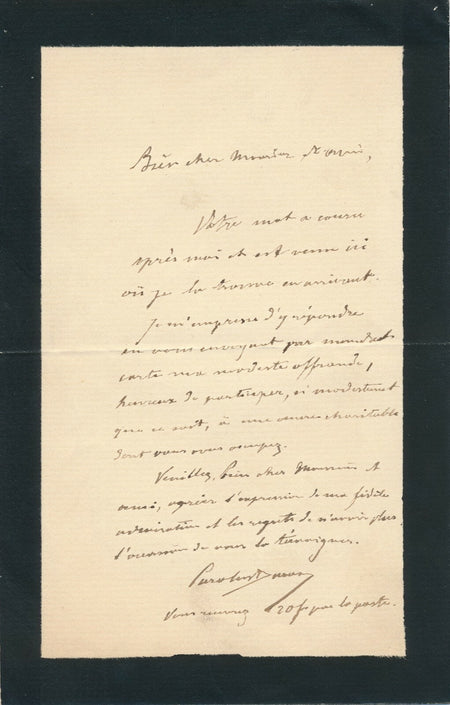 Bien cher Monsieur et ami,
Votre mot a couru
après moi et est venu ici
où je le trouve en arrivant.
Je m'empresse d'y répondre
en vous envoyant par mandat
carte ma modeste offrande,
heureux de participer, si modestement
que ce soit, à une œuvre charitable
dont vous vous occupez.
Veuillez, bien cher Monsieur et
ami, agréer l'expression de ma fidèle
admiration et les regrets de n'avoir plus
l'occasion de vous la témoigner.
Carolus Duran
Vous recevrez 20 f par la poste.